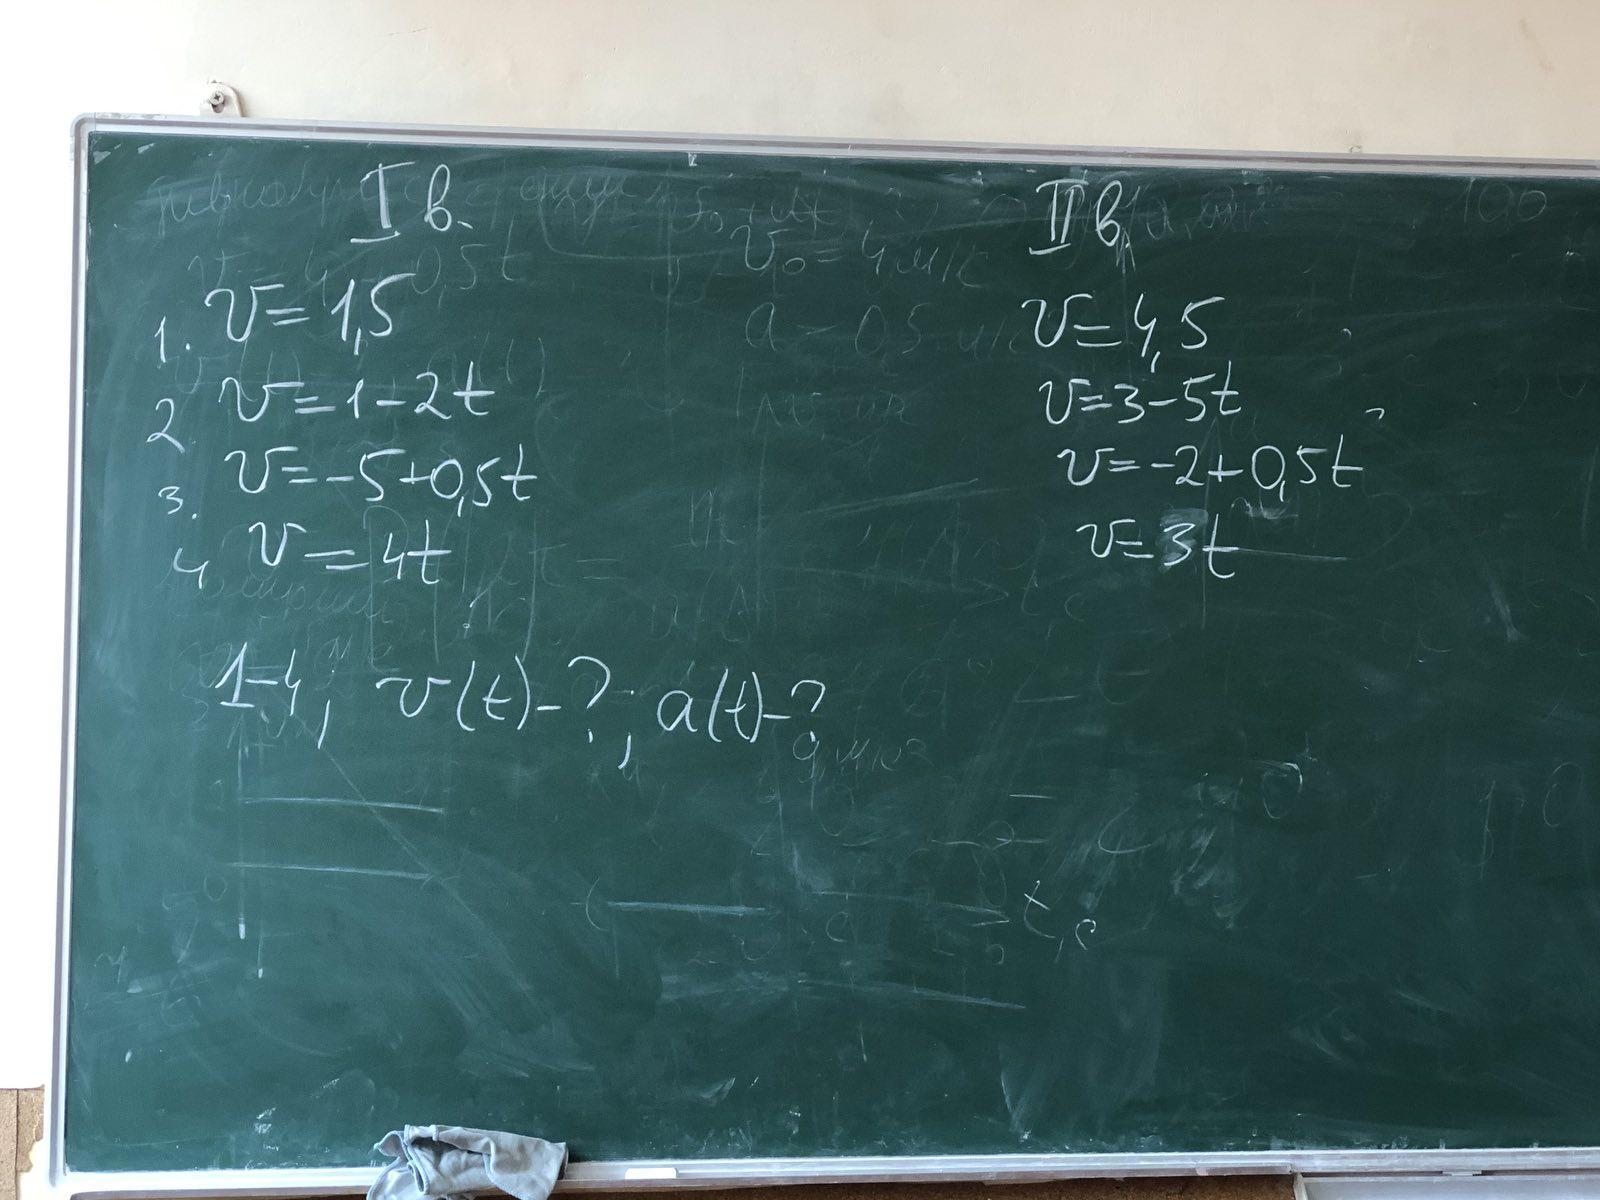 I в.
1. v=1,5
2 v=1-2t
3. v=-5+0,5t
4 v=4t
1-4, v(t)-?; a(t)-?
II в.
v=4,5
v=3-5t
v=-2+0,5t
v=3t
v₀=4м/с
t,c